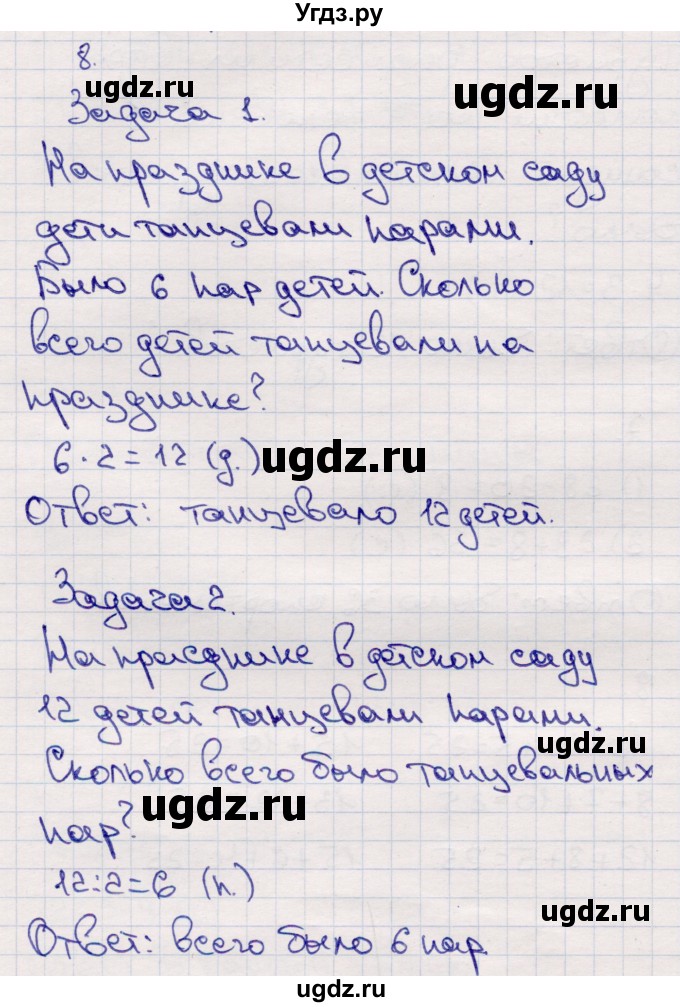 Угдз.ру
8.
ugdz.ru
ugdz.ru
Задача 1.
На празднике в детском саду
дети танцевали парами.
Было 6 пар детей. Сколько
всего детей танцевали на
празднике?
6 · 2 = 12 (д.)
ugdz.ru
Ответ: танцевало 12 детей.
Задача 2.
На празднике в детском саду
12 детей танцевали парами.
ugdz.ru
Сколько всего было танцевальных
ugdz.ru
пар?
12:2=6 (п.)
ugdz.ru
Ответ: всего было 6 пар
ugdz.ru